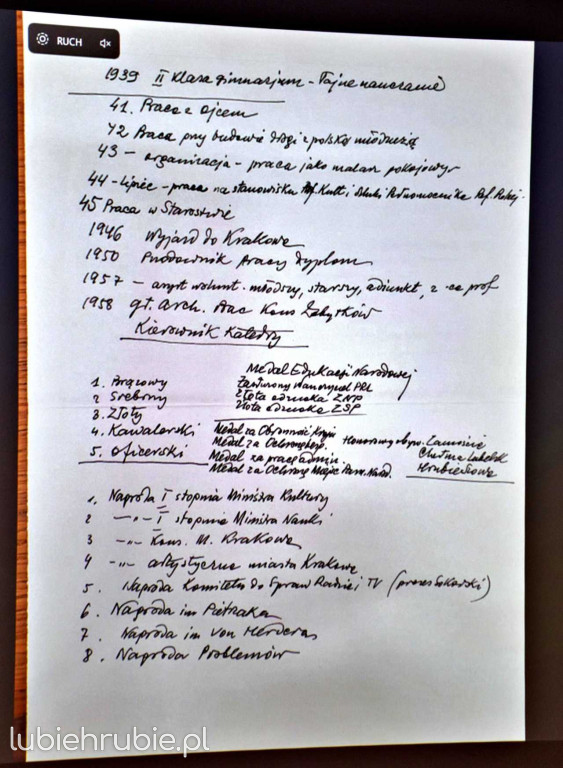 RUCH
1939 II klasa gimnazjum - Tajne nauczanie
41. Praca z ojcem
42 Praca przy budowie drogi z polską młodzieżą
43 - organizacja - praca jako malarz pokojowy
44 - lipiec - praca na stanowisku Kult i Sztuki Pełnomocnika
45 Praca w Starostwie
1946 Wyjazd do Krakowa
1950 Przodownik Pracy Dyplom
1957 - asyst wolunt. młodszy, starszy, adiunkt, z-ca prof
1958 gł. arch. Prac Kons Zabytków
Kierownik Katedry
Medal Edukacji Narodowej
1. Brązowy
Zasłużony Nauczyciel PRL
2 Srebrny
Złota odznaka ZNP
3. Złoty
Złota odznaka ZSP
4. Kawalerski
Medal za Obronność Kraju
5. Oficerski
Medal za
Honorowy obyw. Zamościa
Medal za pracę
Chełma Lubelsk
Medal za Ochronę Miejsc Pam. Narod.
Hrubieszowa
1. Nagroda I stopnia Ministra Kultury
2 -"- I stopnia Ministra Nauki
3 -"- Kons. M. Krakowa
4 -"- artystyczna miasta Krakowa
5. Nagroda Komitetu do Spraw Radia i TV (prezes Sokorski)
6. Nagroda im Pietraka
7. Nagroda im von Herdera
8. Nagroda Problemów
lubiehrubie.pl